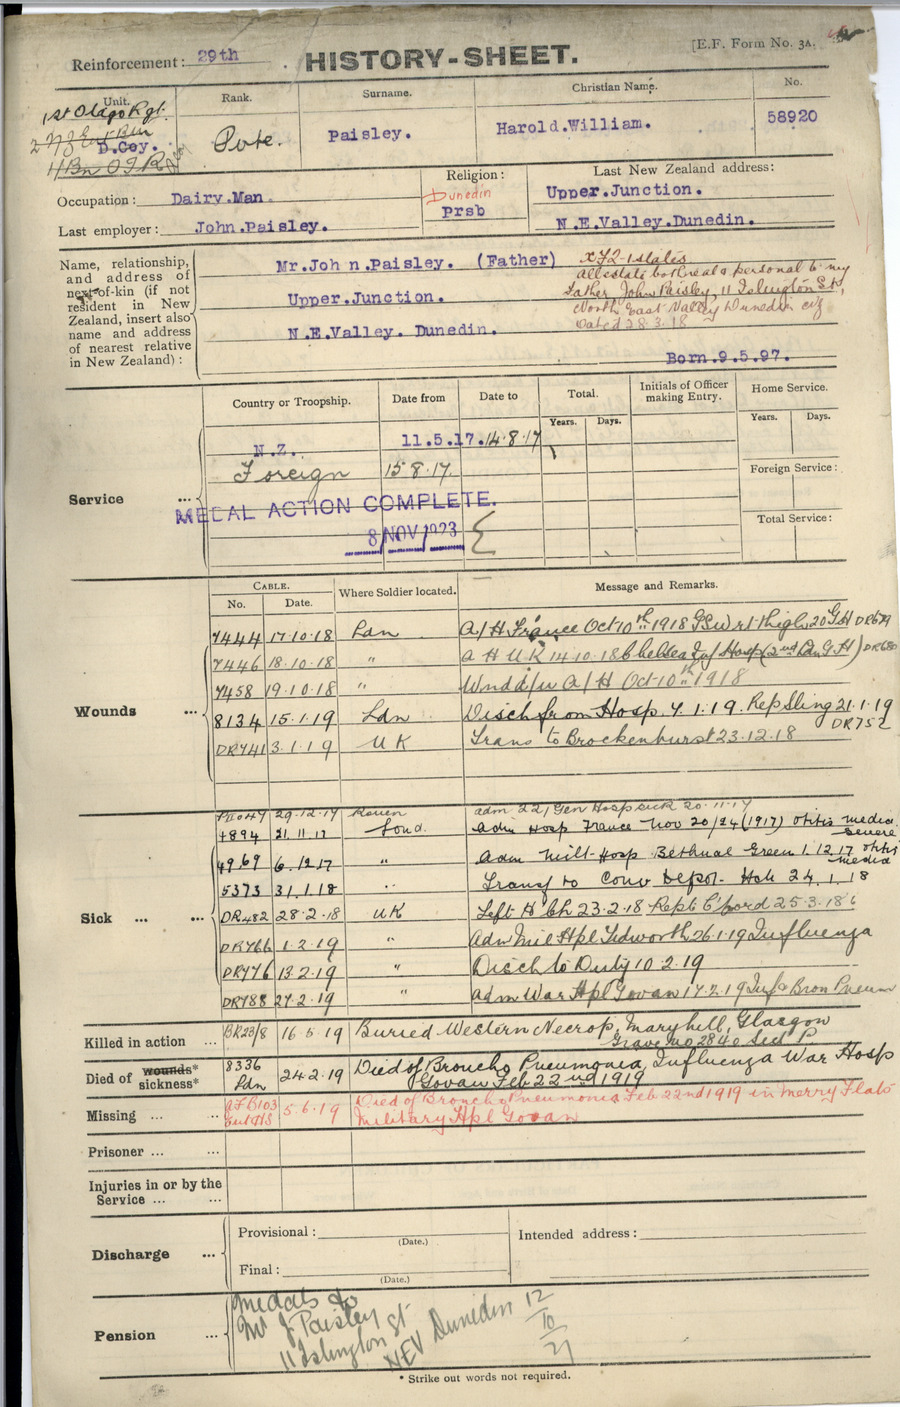 Reinforcement: 29th . HISTORY-SHEET. [E.F. Form No. 3A.
Unit. Rank. Surname. Christian Name. No.
1st Otago Rgt.
D.Coy. Pvte. Paisley. Harold.William. 58920
4 Bn O I R
Occupation: Dairy.Man. Religion: Dunedin Prsb Last New Zealand address: Upper.Junction.
Last employer: John.Paisley. N.E.Valley.Dunedin.
Name, relationship, and address of next-of-kin (if not resident in New Zealand, insert also name and address of nearest relative in New Zealand):
Mr.John.Paisley. (Father)
Upper.Junction.
N.E.Valley. Dunedin.
states
all estate both real & personal to my
Father John Paisley, 11 Islington St,
North East Valley Dunedin NZ
Dated 28.3.18
Born.9.5.97.
Service ...
Country or Troopship. Date from Date to Total. Initials of Officer making Entry. Home Service.
Years. Days. Years. Days.
N.Z. 11.5.17. 14.8.17
Foreign 15.8.17. Foreign Service:
MEDAL ACTION COMPLETE.
Total Service:
8 NOV 1923
Wounds ...
Cable. Where Soldier located. Message and Remarks.
No. Date.
7444 17.10.18 Ldn A/H France Oct 10th 1918 GSW rt thigh 20 GH DR679
7446 18.10.18 " A H UK 14.10.18 Chelsea Hosp (2nd Ldn G H) DR680
7458 19.10.18 " Wnd d/u A/H Oct 10th 1918
8134 15.1.19 Ldn Disch from Hosp. 7.1.19. Rep Sling 21.1.19 DR752
DR741 3.1.19 UK Trans to Brockenhurst 23.12.18
Sick ... ...
29.12.17 Rouen adm 22, Gen Hosp sick 20.11.17
4894 21.11.17 Lond. Adm Hosp France Nov 20/24 (1917) otitis media severe
4969 6.12.17 " Adm Milt Hosp Bethnal Green 1.12.17 otitis media
5373 31.1.18 " Transf to Conv Depot. Hch 24.1.18
DR482 28.2.18 UK Left H Ch 23.2.18 Rept C'ford 25.3.18
DR766 1.2.19 " Adm Mil Hpl Tidworth 26.1.19 Influenza
DR776 13.2.19 " Disch to Duty 10.2.19
DR788 27.2.19 " Adm War Hpl Govan 17.2.19 Inf & Bron Pneum
Killed in action ... BR23/8 16.5.19 Buried Western Necrop, Maryhill, Glasgow
Grave no 2840 Sect P.
Died of wounds* sickness* 8336 Ldn 24.2.19 Died of Broncho Pneumonia, Influenza War Hosp
Govan Feb 22nd 1919
Missing ... .. AFB103 5.6.19 Died of Broncho Pneumonia Feb 22nd 1919 in Merry Flats
Military Hpl Govan
Prisoner ... ...
Injuries in or by the Service ... ...
Discharge ... Provisional: (Date.) Intended address:
Final: (Date.)
Pension ... Medals to
Mr J Paisley
11 Islington St
NEV Dunedin 12/10/21
* Strike out words not required.